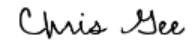 Chris Gee